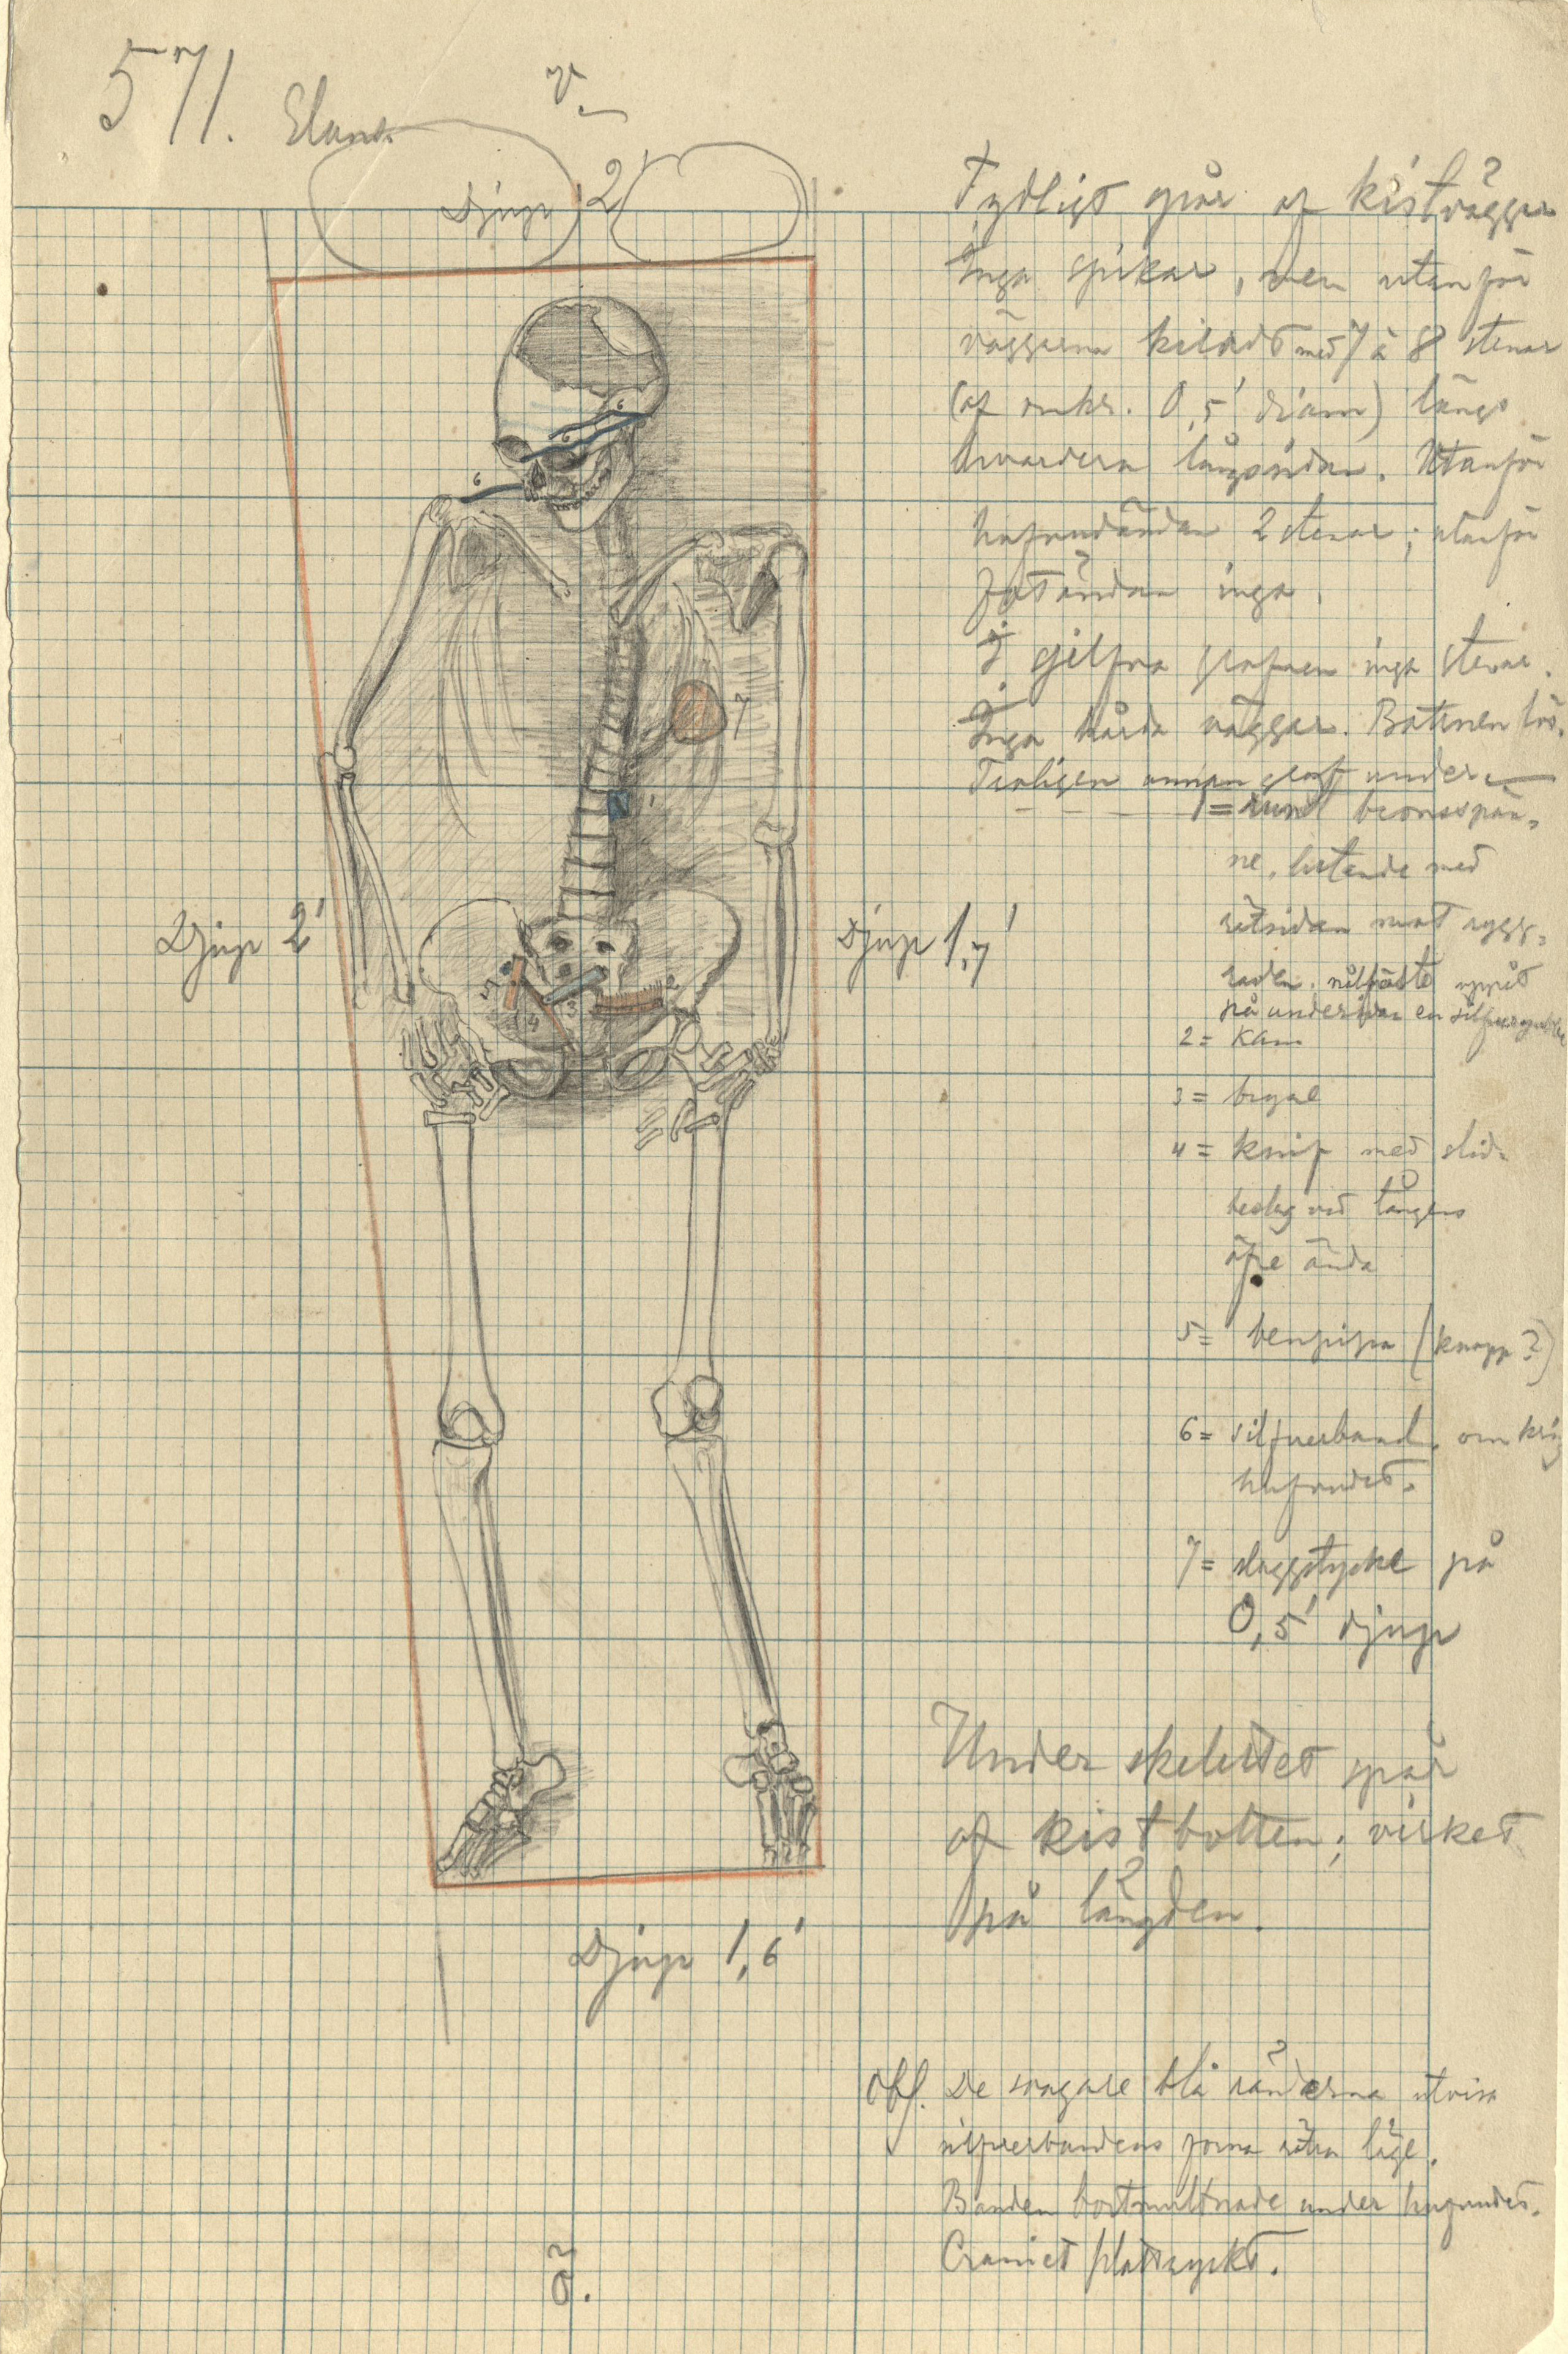 571.
V.
Djup 2'
Tydligt spår af kistväggar
Inga spikar, men utanför
väggarna kiladt med 7 à 8 stenar
(af omkr. 0,5' diam) längs
hvardera långsidan. Utanför
hufvudändan 2 stenar; utanför
fotändan inga.
I sjelfva grafven inga stenar.
Inga hårda väggar. Bottnen lös.
Troligen annan graf under.
1 = rundt bronsspän-
ne, lutande med
rätsidan mot rygg-
raden. nålfäste uppåt
på undersidan en
2 = Kam
3 = bryne
4 = knif med slid-
beslag vid tångens
öfre ända
5 = benpipa (knapp?)
6 = silfverband, omkring
hufvudet.
7 = slaggstycke på
0,5' djup
6
6
6
7
1
2
3
4
5
Djup 2'
Djup 1,7'
Under skelettet spår
af kistbotten; virket
på längden.
Djup 1,6'
Obs. De svagare blå ränderna utvisa
silfverbandens forna rätta läge.
Banden bortmultnade under hufvudet.
Craniet plattryckt.
Ö.